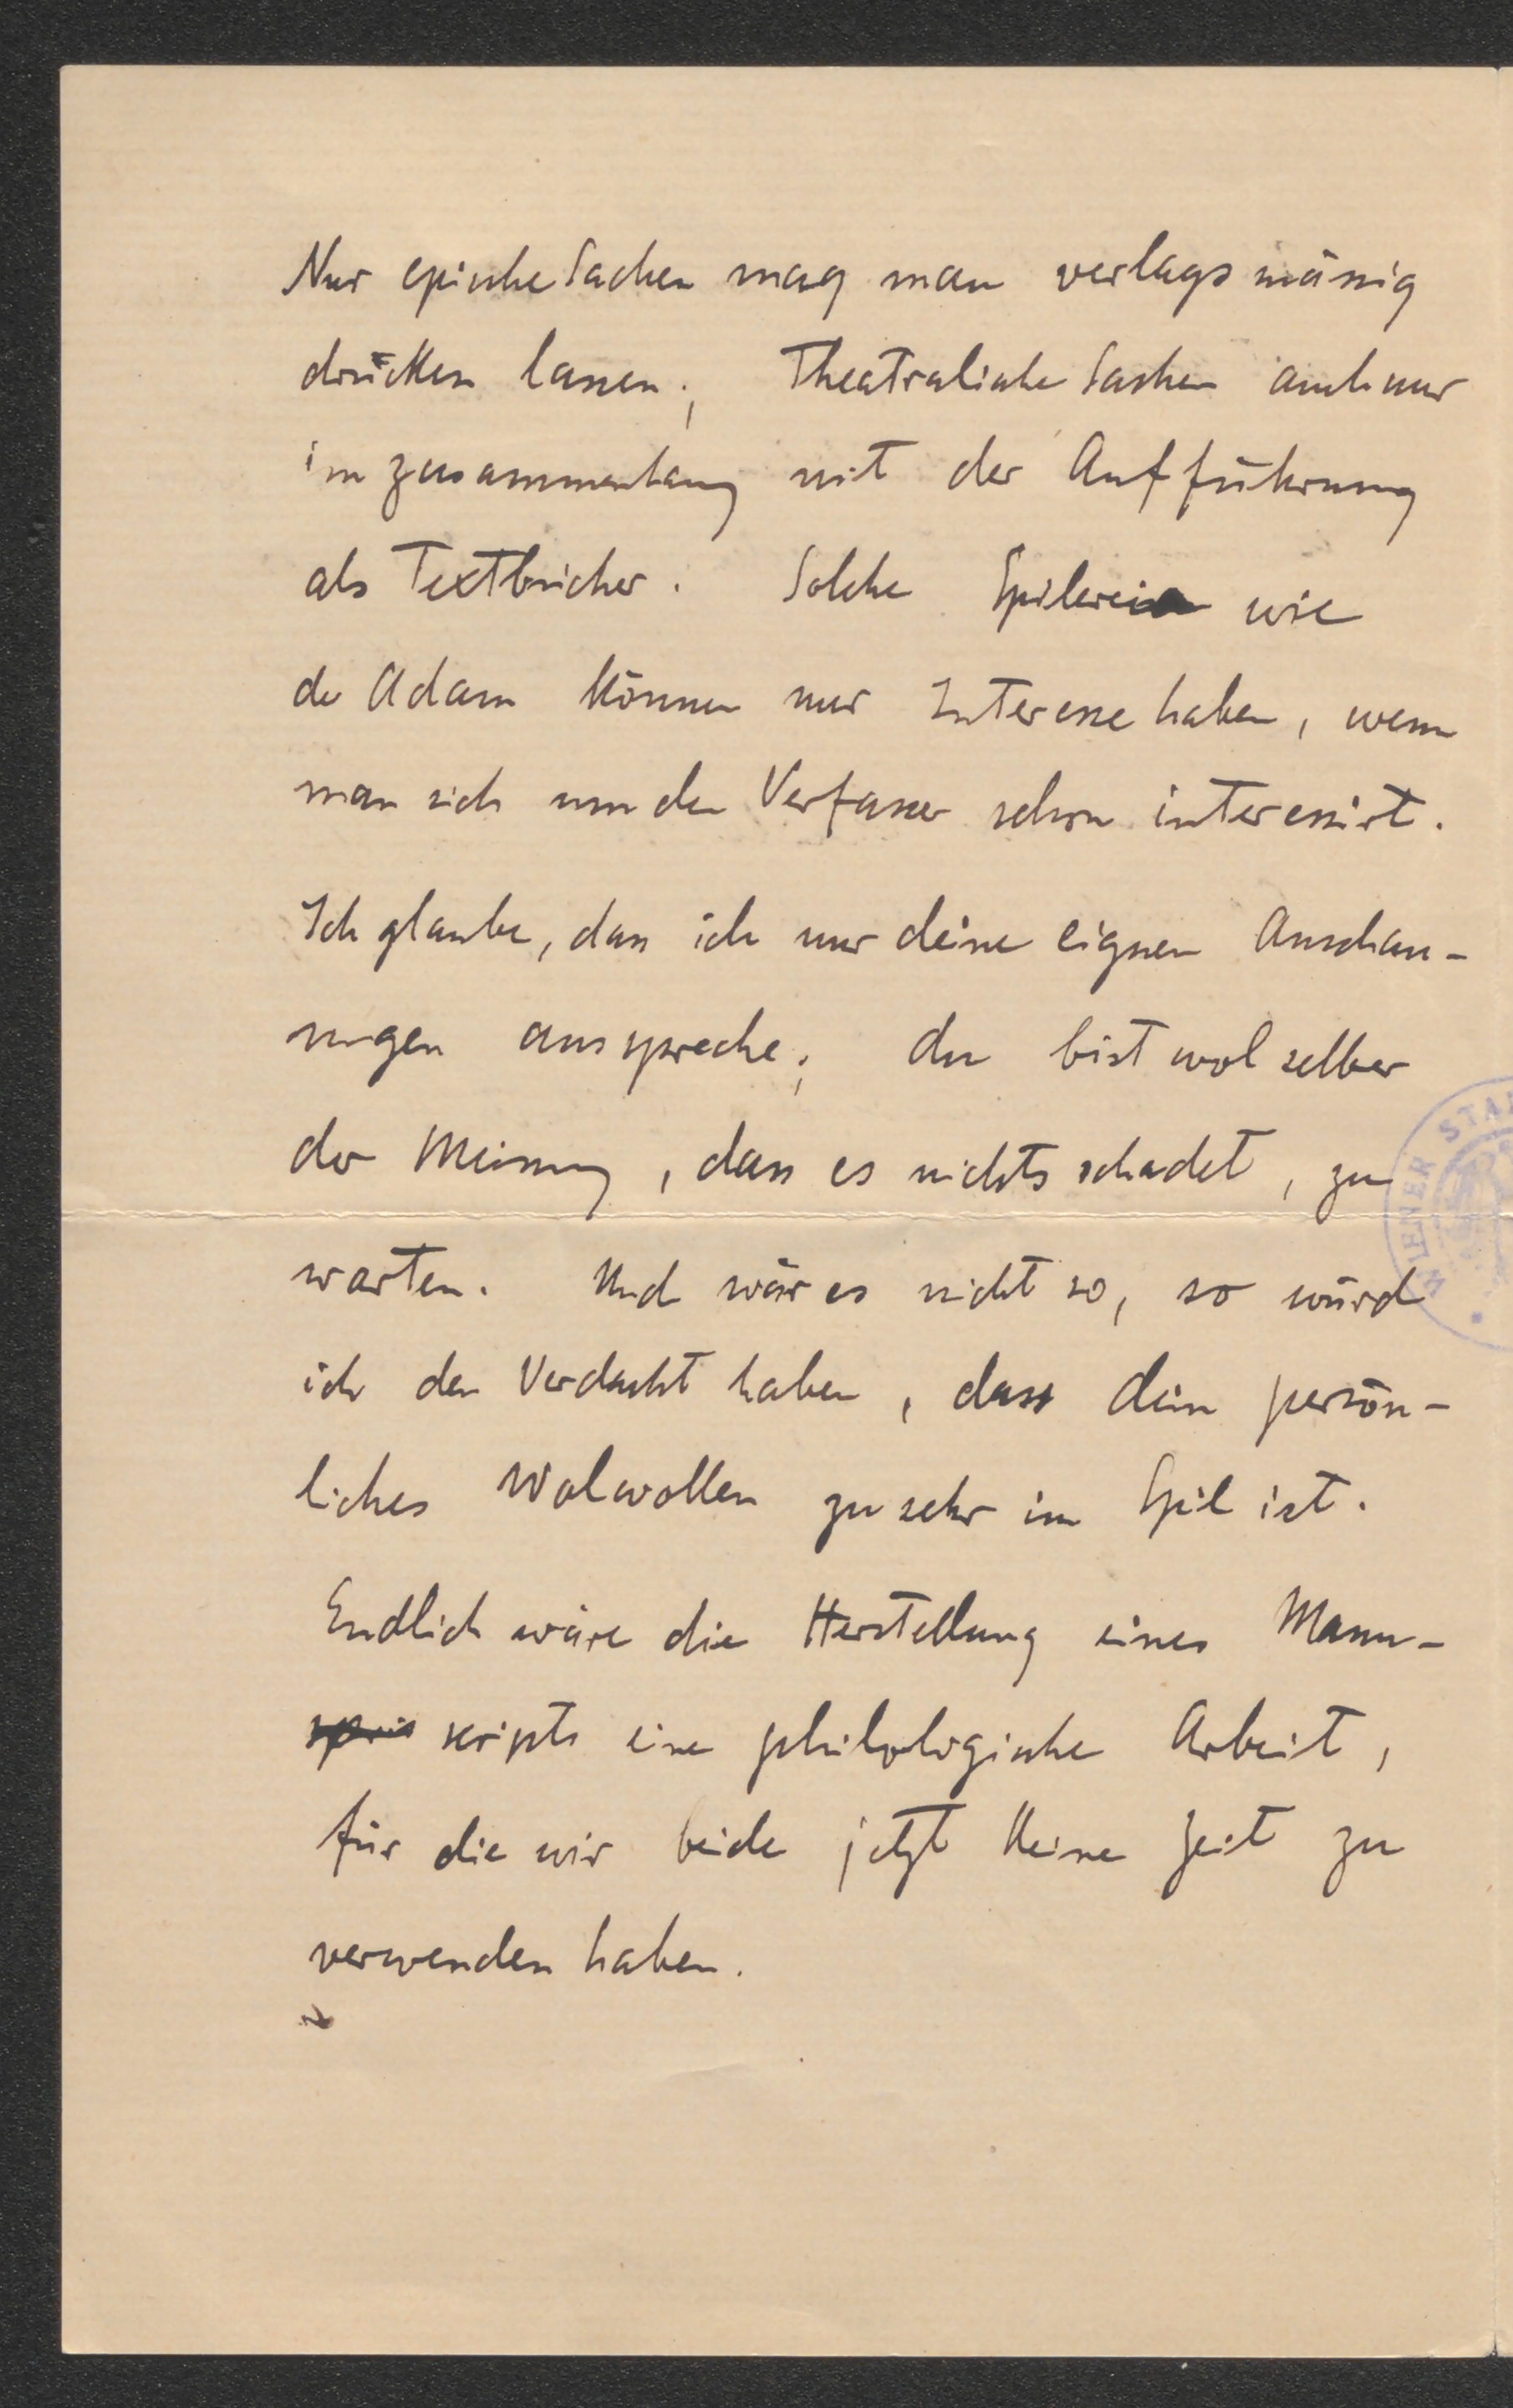 Nur epische Sachen mag man verlagsmässig
drucken lassen; Theatralische Sachen auch nur
im Zusammenhang mit der Aufführung
als Textbücher. Solche Spilerein wie
de Adam können nur Interesse haben, wenn
man sich um den Verfasser schon interessirt.
Ich glaube, dass ich nur deine eignen Anschau-
ungen ausspreche; du bist wol selber
der Meinung, dass es nichts schadet, zu
warten. Und wär es nicht so, so würd
ich den Verdacht haben, dass dein persön-
liches Wolwollen zu sehr im Spil ist.
Endlich wäre die Herstellung eines Manu-
skripts eine philologische Arbeit,
für die wir beide jetzt keine Zeit zu
verwenden haben.
WIENER STA